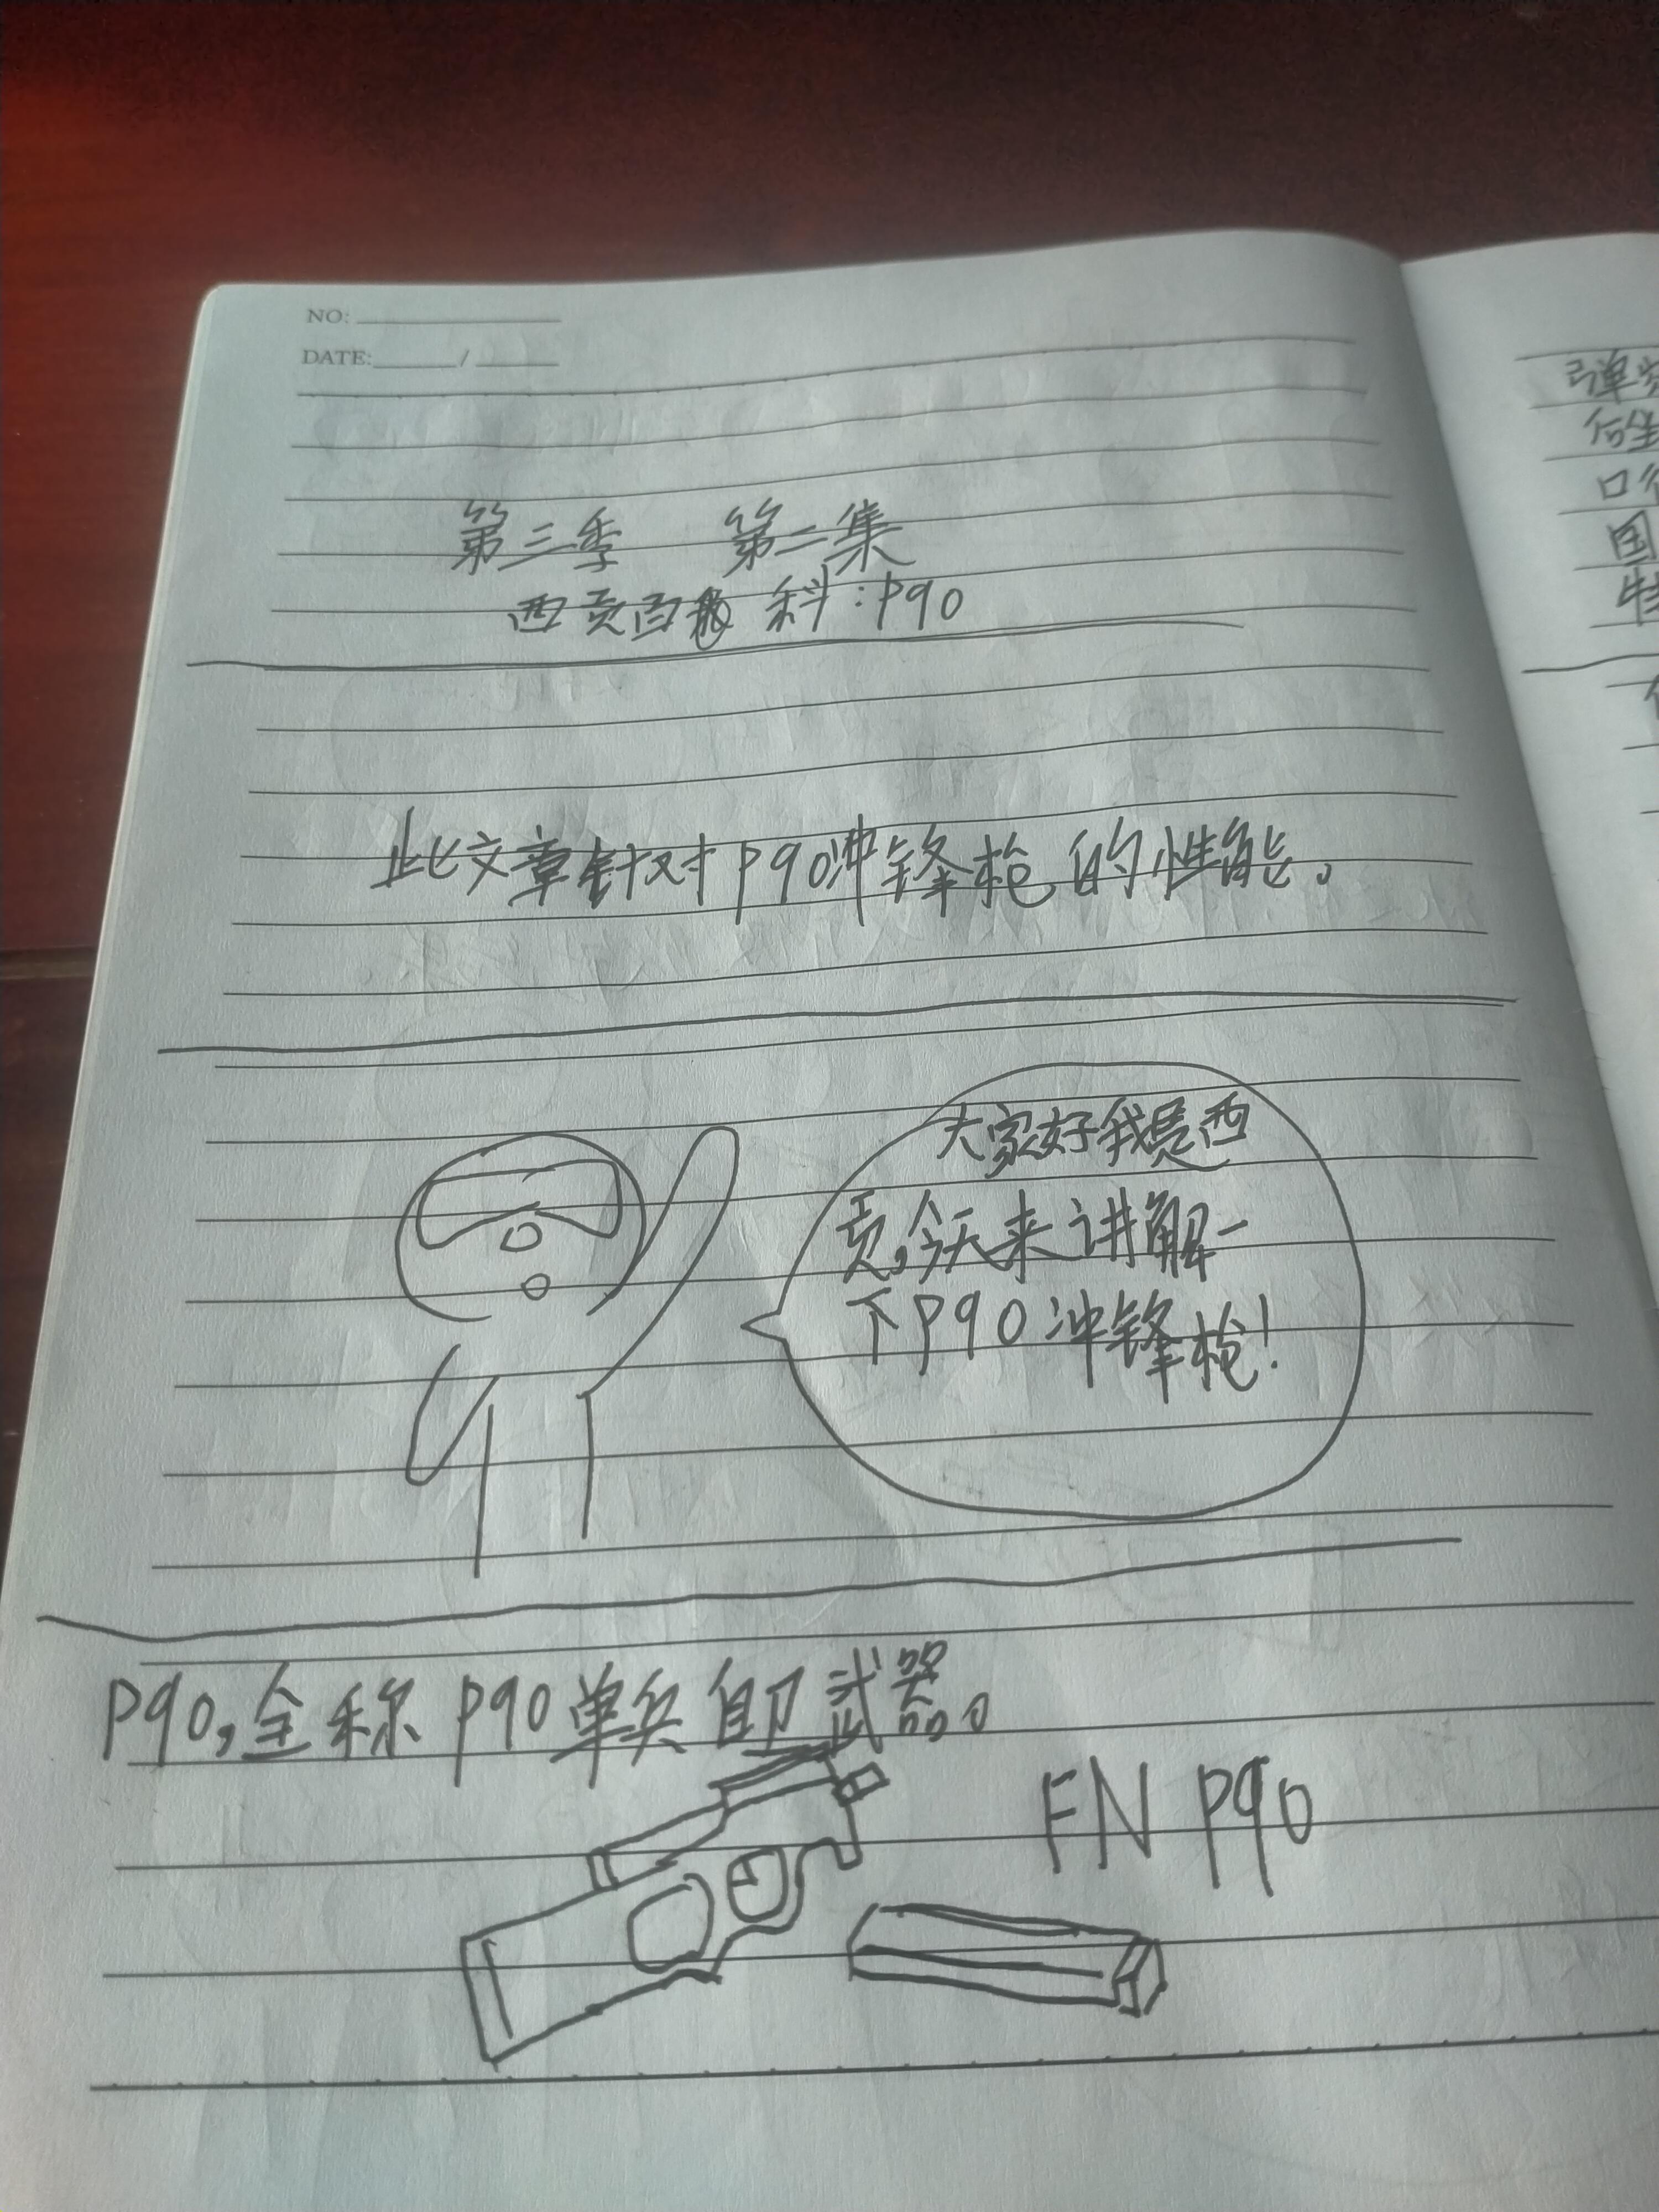 NO:
DATE: /
第三季 第二集
西贡百科:P90
此文章针对P90冲锋枪的性能。
大家好我是西
贡,今天来讲解一
下P90冲锋枪!
P90,全称P90单兵自卫武器。
FN P90
弹
口径
国
特